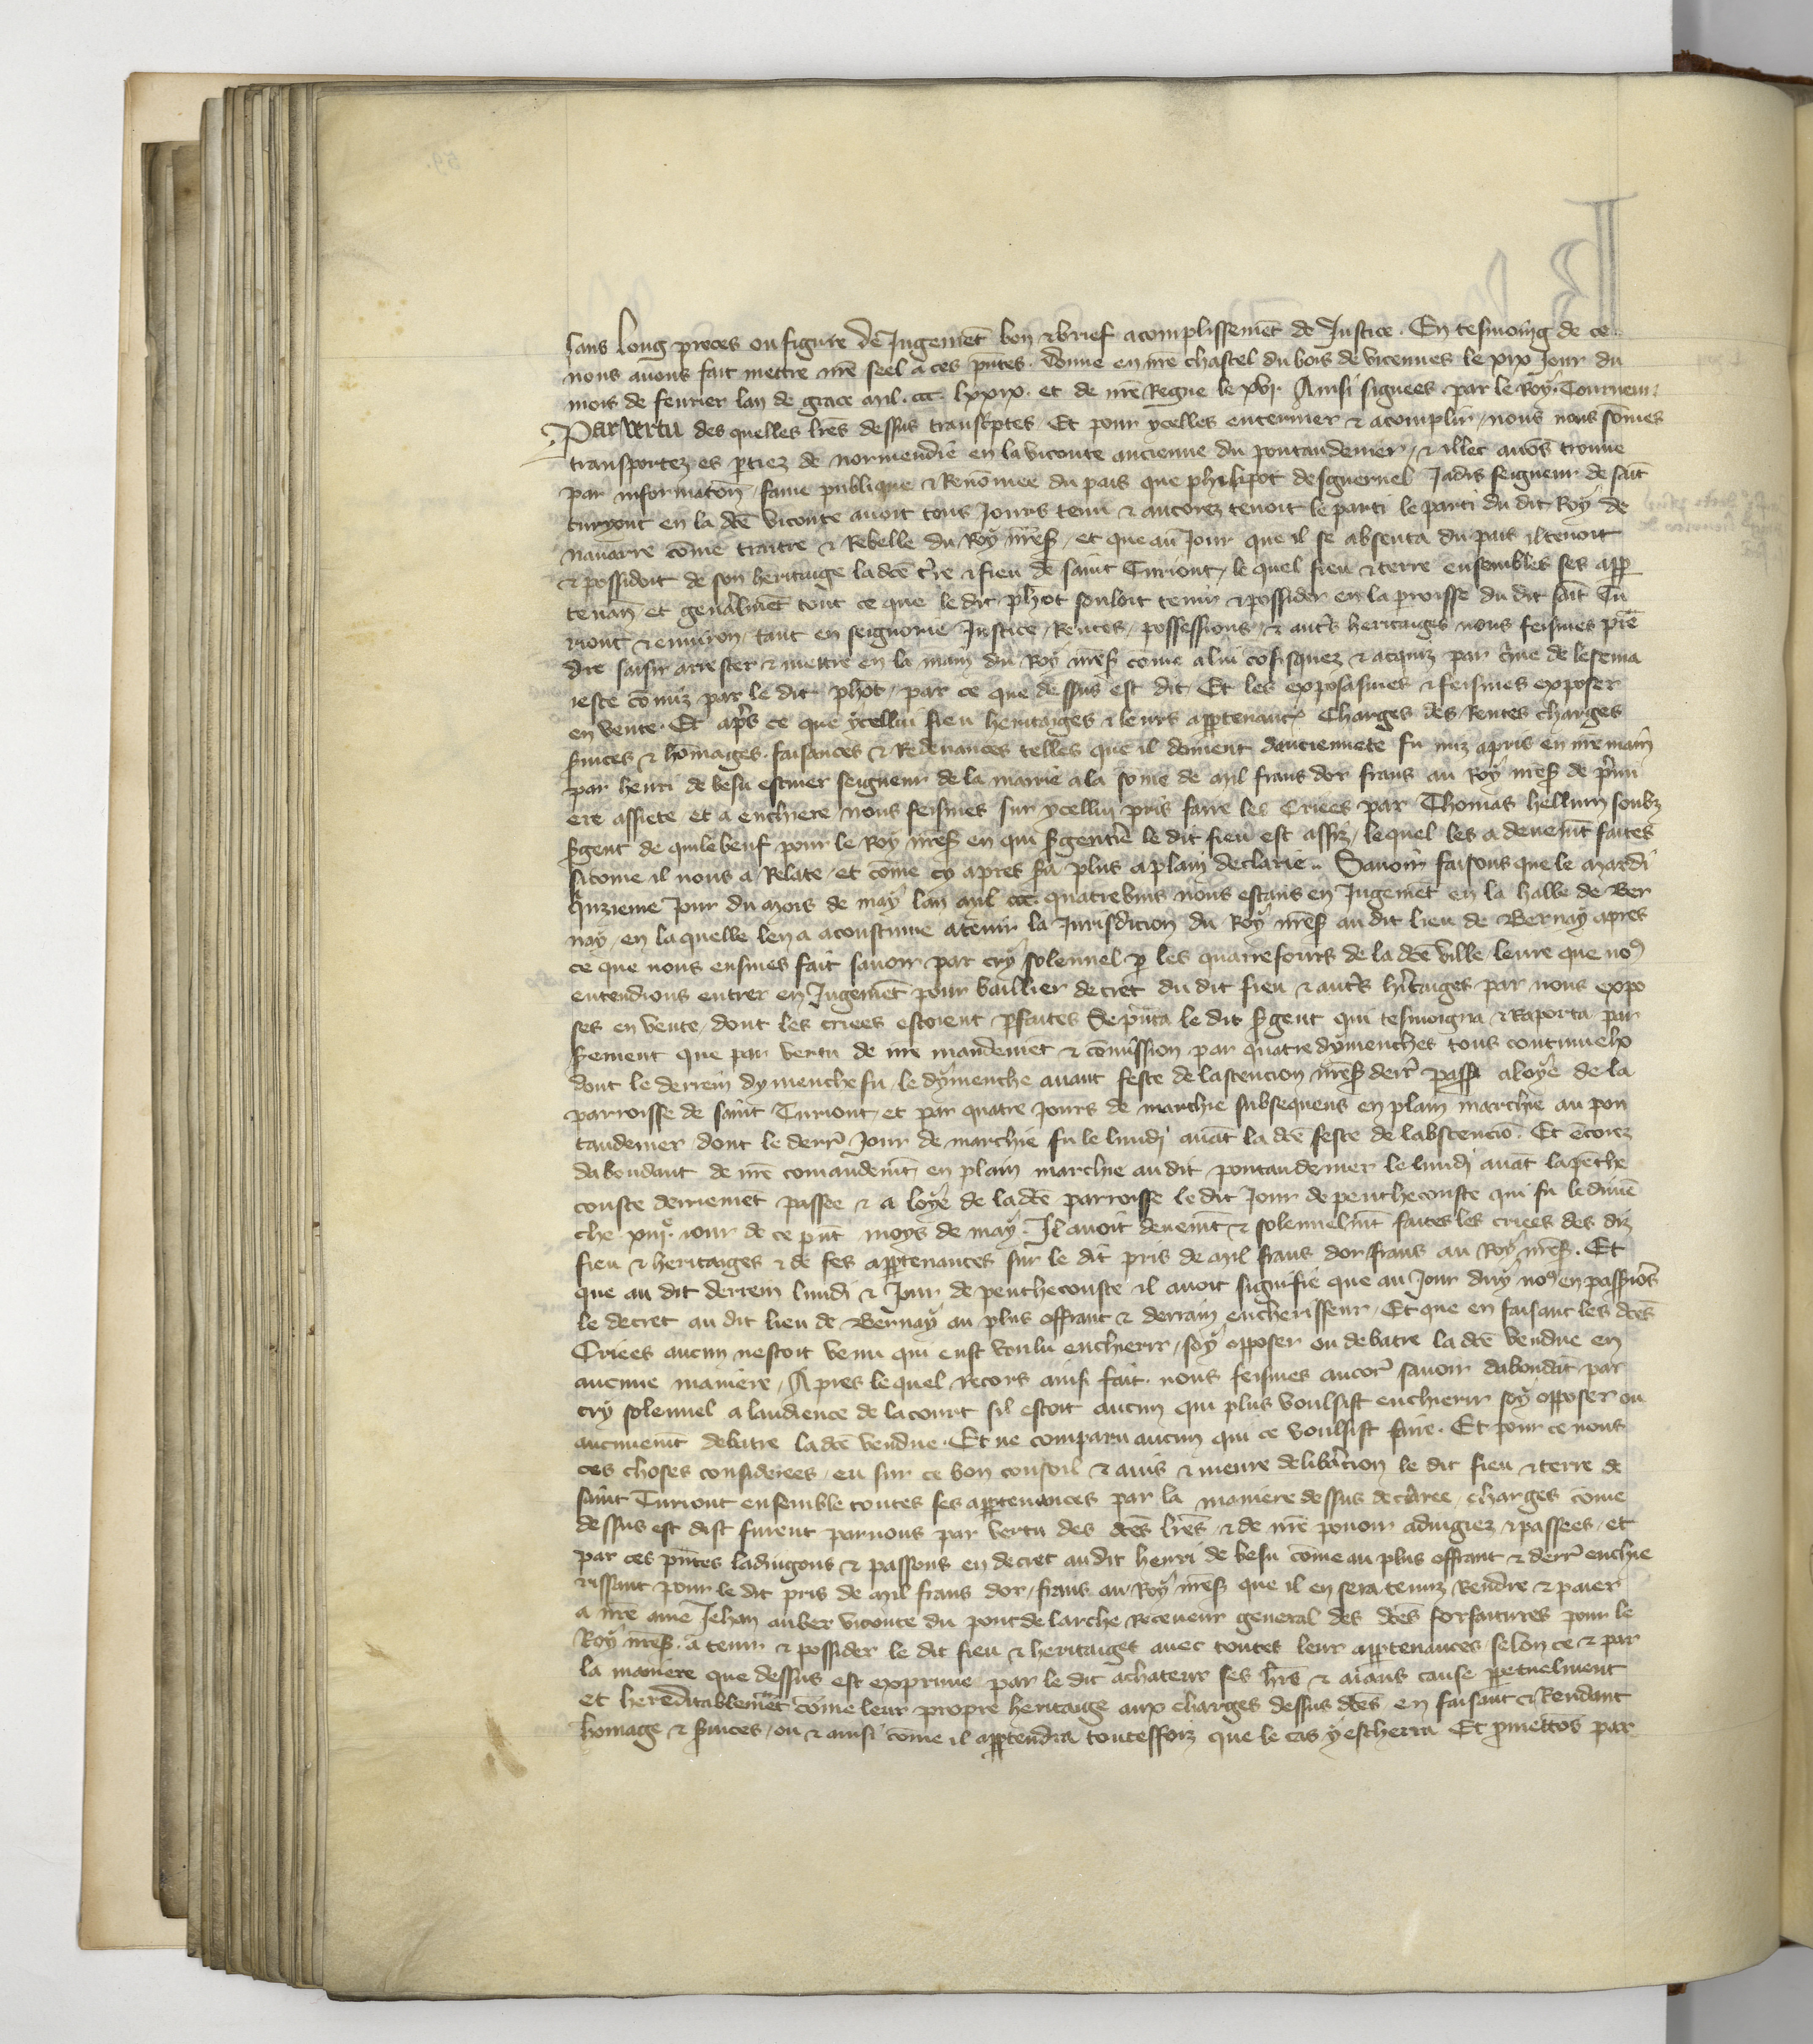 sans long proces ou figure de Jugemēt bon & brief acomplissemēt de Justice. En tesmoing de ce
nous auons fait mettre nr̄e seel a ces pn̄tes. Donne en nr̄e chastel du bois de vicennes le xix Jour du
mois de feurier lan de grace mil. ccc. lxxix. et de nr̄e Regne le xvj. Ainsi signees. par le Roy. Tourneur
Par vertu des quelles lr̄es dessus transcptes Et pour ycelles enteriner & acomplir, nous nous sōmes
transportez es ptiez de normendie en la viconte ancienne du pontaudemer, & illec auōs trouue
par informatōn, fame publique & Renōmee du pais que phelipot desguernel Jadis seigneur de sait
turyont en la dcē viconte auoit tous Jours tenu & ancorez tenoit le parti le parti du dit Roy de
nauarre cōme traitre & Rebelle du Roy nr̄eS. et que au Jour que il se absenta du pais il tenoit
& possidoit de son heritaige la dcē tr̄e & fieu de saint Turiont, le quel fieu & terre ensembles ses app
tenan, et genālmēt tout ce que le dit phot souloit tenir & possider en la proisse du dit sait Tu
riont & enuiron, tant en seignorie Justice, Rentes, possessions, & aut's heritaiges nous feismes prē
dre saisir arrester & mettre en la main du Roy nr̄eS come a lui cōfisquez & acquiz par c'me de lesema
ieste cōmiz par le dit phot, par ce que dessus est dit. Et les exposasmes & feismes exposer
en vente. Et ap's ce que ycellui fieu heritaiges & leurs apptenanc' Charges des Rentes charges
s'uices & hōmages. faisances & Redeuances telles que il doiuent dancienneté fu miz a pris en nr̄e main
par henri de besu escuier seigneur de la mairie a la sōme de mil frans dor frans au Roy nr̄eS de p'mi
ere assiete et a enchiere nous feismes sur ycellui pris faire les Criees par Thomas helluin soubz
s'gent de quilebeuf pour le Roy nr̄eS en qui s'gentie le dit fieu est assiz, lequel les a deuemt faites
sicome il nous a Relate, et cōme cy apres sa plus a plain declarie. Sauoir faisons que le mardi
quīzieme Jour du mois de may lan mil ccc. quatrevins nous estans en Jugemēt en la halle de Ber
nay, en la quelle len a acoustume a tenir la Jurisdicion du Roy nr̄eS au dit lieu de Bernay apres
ce que nous eusmes fait sauoir par cry solennel p les quarrefours de la dcē ville leure que no9
entendions entrer en Jugemēt pour baillier decret du dit fieu & aut's h'itaiges par nous expo
ses en vente, dont les criees estoient pfaites Se pn̄ta le dit s'gent qui tesmoigna & Raporta par
s'ement que par vertu de nr̄e mandemēt & cōmission par quatre dymenches tous continuelx
dont le derrein dymenche fu le dymenche auant feste de lascencion nr̄eS derr' passe a loye de la
parroisse de saint Turiont, et par quatre Jours de marchie subsequens en plain marchie au pon
taudemer dont le derr' Jour de marchie fu le lundi auāt la dcē feste de labscenciō. Et ēcorez
dabondant de nr̄e comandemt en plain marchie au dit pontaudemer le lundi auāt la pēthe
couste derriemēt passee & a loye de la dcē parroisse le dit Jour de pentecouste qui fu le dimē
che xiij. iour de ce pn̄t moys de may. Il auoit deuemt & solennelmt faites les criees des diz
fieu & heritaiges & de ses apptenances sur le dit pris de mil frans dor frans au Roy nr̄eS. Et
que au dit derrein lundi & Jour de pentecouste il auoit signifie que au Jour duy no9 en passiōs
le decret au dit lieu de Bernay au plus offrant & derrain encherisseur. Et que en faisant les dcēs
Criees aucun nestoit venu qui eust voulu enchierir, soy opposer ou debatre la dcē vendue en
aucune maniere, Apres lequel Recors ainsi fait. nous feismes ancor' sauoir dabondāt par
cry solennel a laudience de la court sil estoit aucun qui plus voulsist enchierir soy opposer ou
aucunemt debatre la dcē vendue. Et ne comparu aucun qui ce voulsist faire. Et pour ce nous
ces choses considerees, eu sur ce bon conseil & auis & meure delib'acion le dit fieu & terre de
saint Turiont ensemble toutes ses apptenances par la maniere dessus declaree, charges come
dessus est dist furent par nous par vertu des dcēs lr̄es & de nr̄e pouoir adiugiez & passees, et
par ces pn̄tes ladiugons & passons en decret au dit henri de besu cōme au plus offrant & derr' enchie
rissant pour le dit pris de mil frans dor, frans au Roy nr̄eS que il en sera tenuz Rendre & paier
a nr̄e ame Jehan auber viconte du pont de larche Receueur general des dcēs forfaitures pour le
Roy nr̄eS. a tenir & possider le dit fieu & heritaiges auec toutes leur apptenances selon ce & par
la maniere que dessus est exprime par le dit achateur ses hr̄s & aians cause ppetuelment
et hereditablemēt cōme leur propre heritaige aux charges dessus dcēs en faisant & Rendant
homage & s'uices, ou & ainsi cōme il apptendra toutesffoiz que le cas y escherra Et pmettōs par